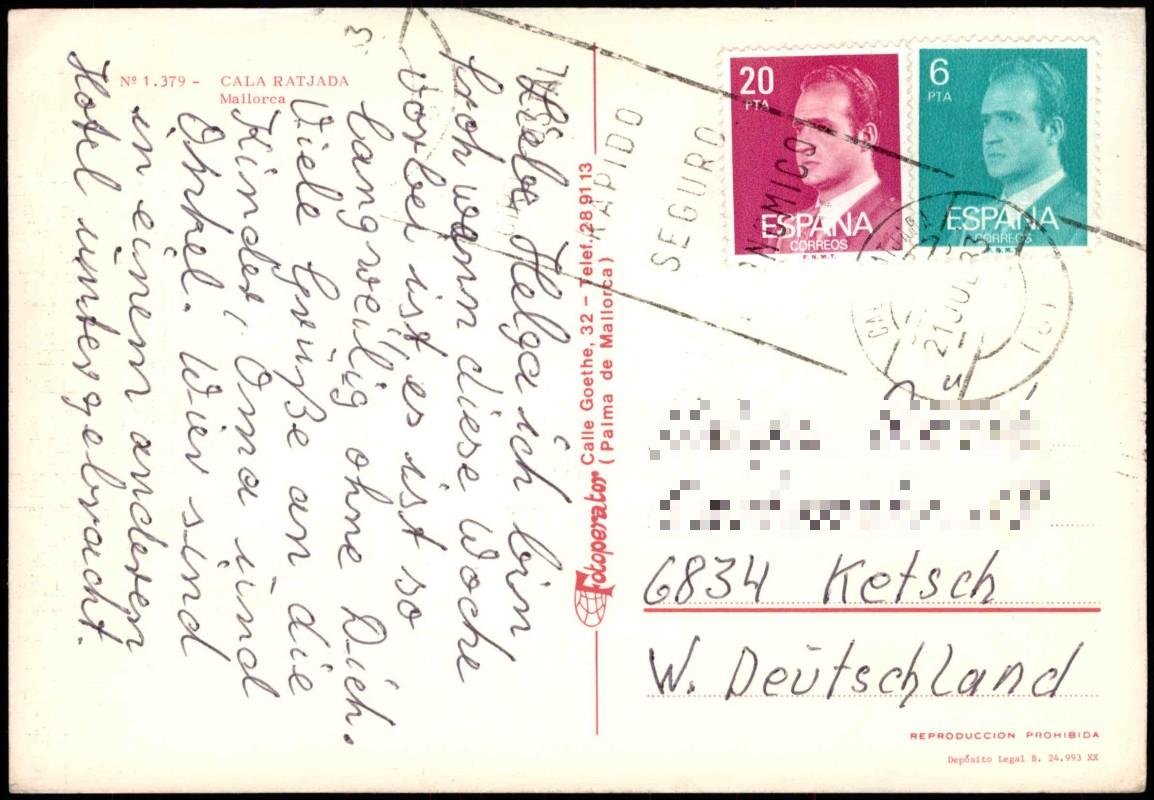 Nº 1.379 - CALA RATJADA
Mallorca
Liebe Helga ich bin
froh wenn diese Woche
vorbei ist, es ist so
langweilig ohne Dich.
Viele Grüße an die
Kinder, Oma und
Onkel. Wier sind
in einem anderen
Hotel untergebracht.
Fotoperator Calle Goethe, 32 - Telef. 28 91 13
(Palma de Mallorca)
RAPIDO
SEGURO
20
PTA
ESPAÑA
CORREOS
F.N.M.T.
6
PTA
ESPAÑA
CORREOS
21 JUL
6834 Ketsch
W. Deutschland
REPRODUCCION PROHIBIDA
Depósito Legal B. 24.993 XX